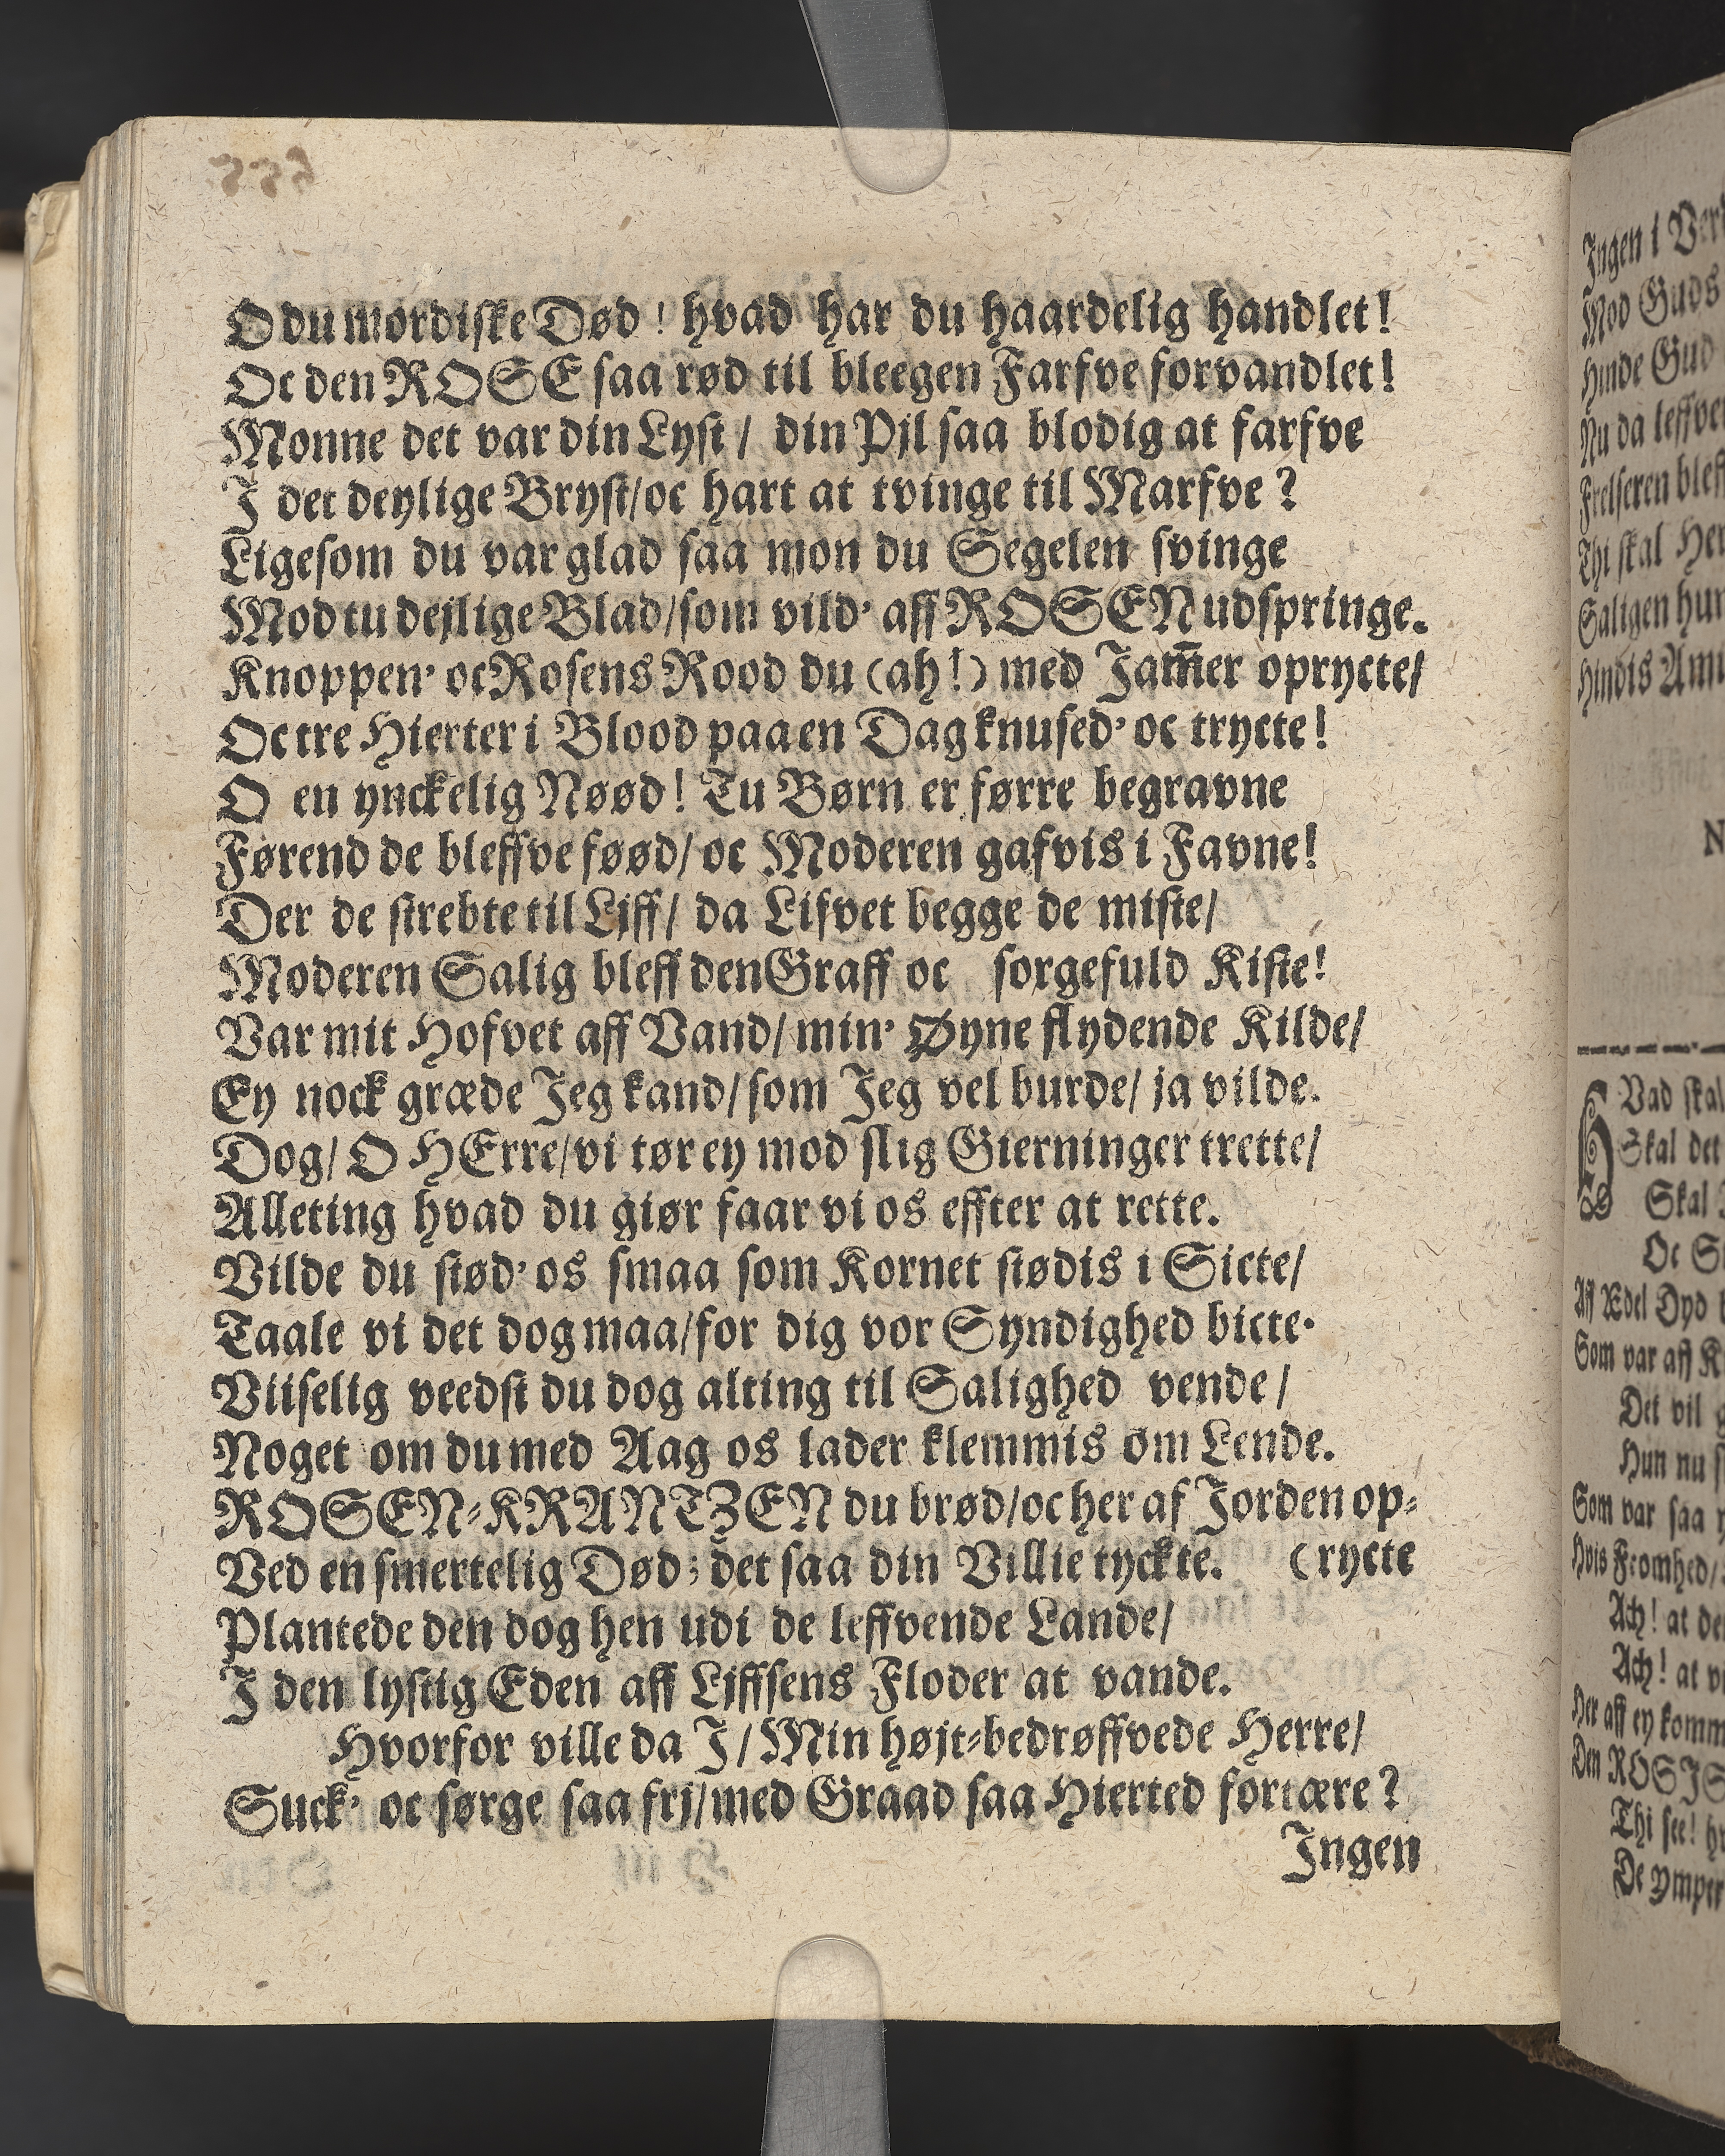 O du mordiſke Død! hvad har du haardelig handlet!
Oc den ROSE ſaa rød til bleegen Farfve forvandlet!
Monne det var din Lyſt / din Pjl ſaa blodig at farfve
J det deylige Bryſt/oc hart at tvinge til Marfve?
Ligeſom du var glad ſaa mon du Segelen ſvinge
Mod tu dejlige Blad/ſom vild' aff ROSEN udſpringe.
Knoppen' oc Roſens Rood du (ah!) med Jam̄er oprycte/
Oc tre Hierter i Blood paa en Dag knuſed' oc trycte!
O en ynckelig Nøød! Tu Børn er førre begravne
Førend de bleffve føød/ oc Moderen gafvis i Favne!
Der de ſtrebte til Ljff/ da Lifvet begge de miſte/
Moderen Salig bleff den Graff oc ſorgefuld Kiſte!
Var mit Hofvet aff Vand/ min' Øyne flydende Kilde/
Ey nock græde Jeg kand/ ſom Jeg vel burde/ ja vilde.
Dog/ O HErre/vi tør ey mod ſlig Gierninger trette/
Alleting hvad du giør faar vi os effter at rette.
Vilde du ſtød' os ſmaa ſom Kornet ſtødis i Sicte/
Taale vi det dog maa/for dig vor Syndighed bicte.
Viiſelig veedſt du dog alting til Salighed vende /
Noget om du med Aag os lader klemmis om Lende.
ROSEN⸗KRANTZEN du brød/oc her af Jorden op⸗
Ved en ſmertelig Død; det ſaa din Villie tyckte. (rycte
Plantede den dog hen udi de leffvende Lande/
J den lyſtig Eden aff Ljffſens Floder at vande.
Hvorfor ville da J/ Min højt⸗bedrøffvede Herre/
Suck' oc ſørge ſaa frj/med Graad ſaa Hierted fortære?
Jngen
Jngen i
Mod Guds
Hinde Gud
Nu da
Frelſeren
Thi ſkal
Saligen
Hindis
Vad
Skal det
Skal
Oc
Aff Ædel Dyd
Som var aff
Det vil
Hun nu
Som var ſaa
Hvis Fromhed/
Ach! at
Ach! at
Her aff ey
Den
Thi ſee!
De